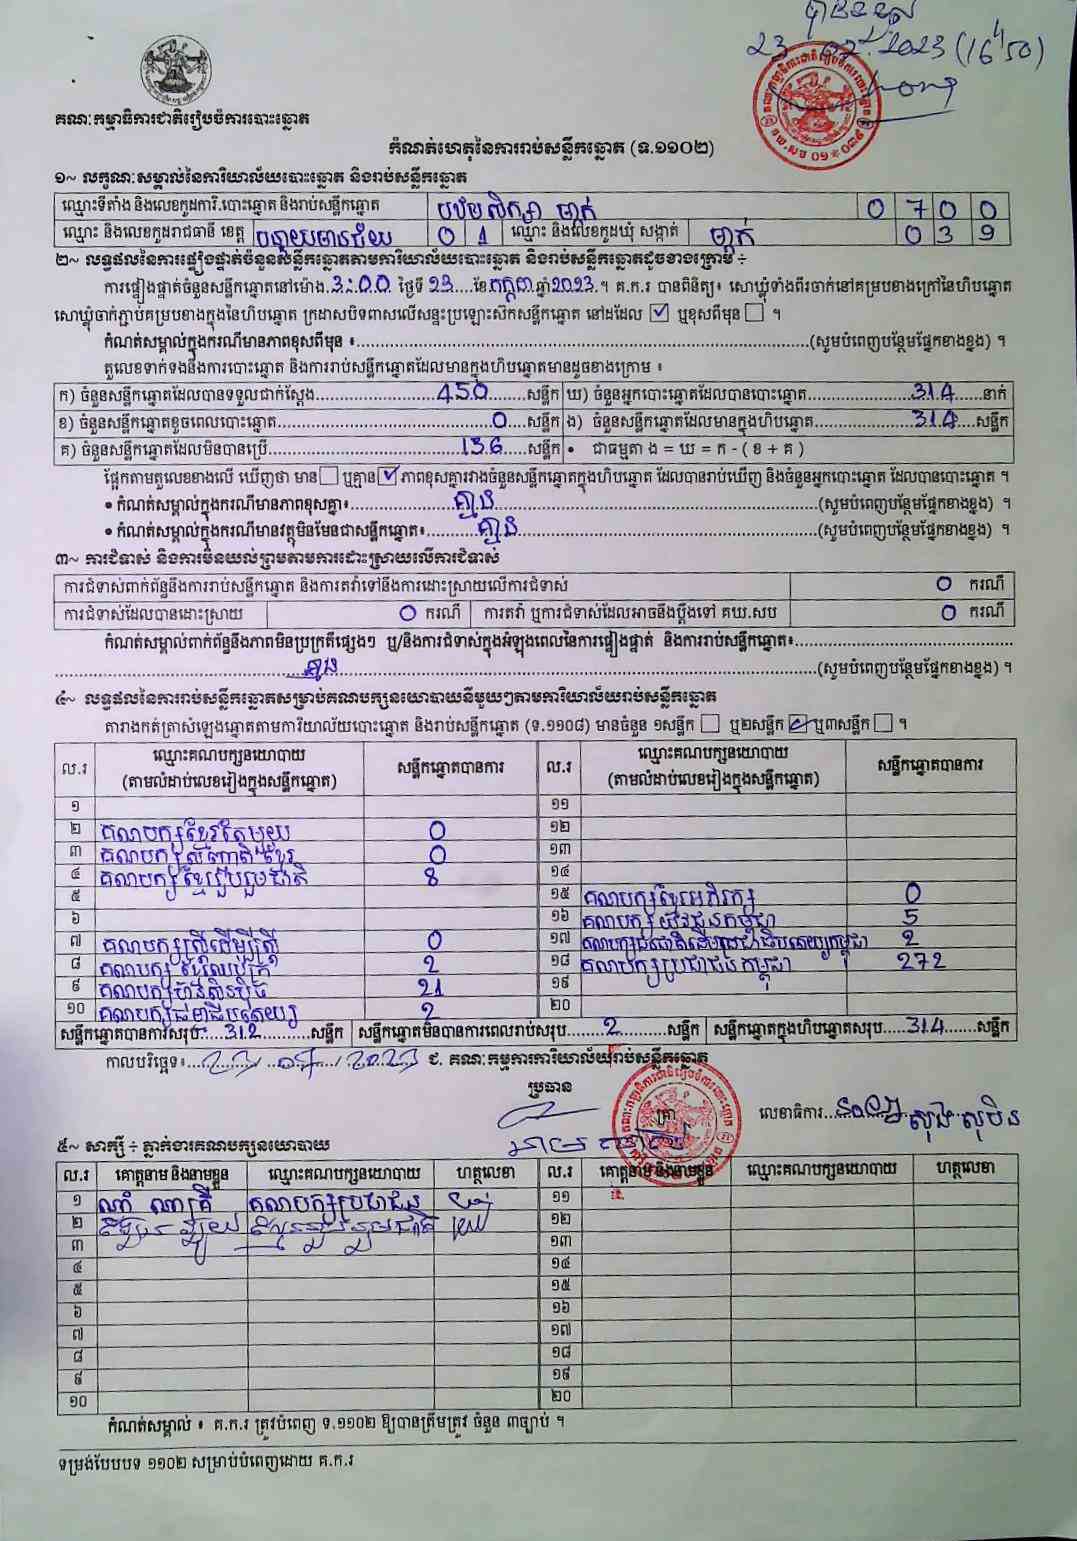 បានទទួល
23 07 2023 (16h50)
គណៈកម្មាធិការជាតិរៀបចំការបោះឆ្នោត
កំណត់ហេតុនៃការរាប់សន្លឹកឆ្នោត (ទ.១១០២)
១~ លក្ខណៈសម្គាល់នៃការិយាល័យបោះឆ្នោត និងរាប់សន្លឹកឆ្នោត
ឈ្មោះទីតាំង និងលេខកូដការិ.បោះឆ្នោត និងរាប់សន្លឹកឆ្នោត បឋមសិក្សា ម៉ាក់ 0 7 0 0
ឈ្មោះ និងលេខកូដរាជធានី ខេត្ត បន្ទាយមានជ័យ 0 1 ឈ្មោះ និងលេខកូដឃុំ សង្កាត់ ម៉ាក់ 0 3 9
២~ លទ្ធផលនៃការផ្ទៀងផ្ទាត់ចំនួនសន្លឹកឆ្នោតតាមការិយាល័យបោះឆ្នោត និងរាប់សន្លឹកឆ្នោតដូចខាងក្រោម ÷
ការផ្ទៀងផ្ទាត់ចំនួនសន្លឹកឆ្នោតនៅម៉ោង 3:00 ថ្ងៃទី 23 ខែ កក្កដា ឆ្នាំ 2023 ។ គ.ក.រ បានពិនិត្យ៖ សោឃ្លុំទាំងពីរចាក់នៅគម្របខាងក្រៅនៃហិបឆ្នោត
សោឃ្លុំចាក់ភ្ជាប់គម្របខាងក្នុងនៃហិបឆ្នោត ក្រដាសបិទពាសលើសន្ទះប្រឡោះស៊កសន្លឹកឆ្នោត នៅដដែល ☑ ឬខុសពីមុន ☐ ។
កំណត់សម្គាល់ក្នុងករណីមានភាពខុសពីមុន ៖ (សូមបំពេញបន្ថែមផ្នែកខាងខ្នង) ។
តួលេខទាក់ទងនឹងការបោះឆ្នោត និងការរាប់សន្លឹកឆ្នោតដែលមានក្នុងហិបឆ្នោតមានដូចខាងក្រោម ៖
ក) ចំនួនសន្លឹកឆ្នោតដែលបានទទួលជាក់ស្តែង 450 សន្លឹក ឃ) ចំនួនអ្នកបោះឆ្នោតដែលបានបោះឆ្នោត 314 នាក់
ខ) ចំនួនសន្លឹកឆ្នោតខូចពេលបោះឆ្នោត 0 សន្លឹក ង) ចំនួនសន្លឹកឆ្នោតដែលមានក្នុងហិបឆ្នោត 314 សន្លឹក
គ) ចំនួនសន្លឹកឆ្នោតដែលមិនបានប្រើ 136 សន្លឹក • ជាធម្មតា ង = ឃ = ក - ( ខ + គ )
ផ្អែកតាមតួលេខខាងលើ ឃើញថា មាន ☐ ឬគ្មាន ☑ ភាពខុសគ្នារវាងចំនួនសន្លឹកឆ្នោតក្នុងហិបឆ្នោត ដែលបានរាប់ឃើញ និងចំនួនអ្នកបោះឆ្នោត ដែលបានបោះឆ្នោត ។
• កំណត់សម្គាល់ក្នុងករណីមានភាពខុសគ្នា៖ គ្មាន (សូមបំពេញបន្ថែមផ្នែកខាងខ្នង) ។
• កំណត់សម្គាល់ក្នុងករណីមានវត្ថុមិនមែនជាសន្លឹកឆ្នោត៖ គ្មាន (សូមបំពេញបន្ថែមផ្នែកខាងខ្នង) ។
៣~ ការជំទាស់ និងការមិនយល់ព្រមតាមការដោះស្រាយលើការជំទាស់
ការជំទាស់ពាក់ព័ន្ធនឹងការរាប់សន្លឹកឆ្នោត និងការតវ៉ាទៅនឹងការដោះស្រាយលើការជំទាស់ 0 ករណី
ការជំទាស់ដែលបានដោះស្រាយ 0 ករណី ការតវ៉ា ឬការជំទាស់ដែលអាចនឹងប្តឹងទៅ គឃ.សប 0 ករណី
កំណត់សម្គាល់ពាក់ព័ន្ធនឹងភាពមិនប្រក្រតីផ្សេងៗ ឬ/និងការជំទាស់ក្នុងអំឡុងពេលនៃការផ្ទៀងផ្ទាត់ និងការរាប់សន្លឹកឆ្នោត៖
គ្មាន (សូមបំពេញបន្ថែមផ្នែកខាងខ្នង) ។
៤~ លទ្ធផលនៃការរាប់សន្លឹកឆ្នោតសម្រាប់គណបក្សនយោបាយនីមួយៗតាមការិយាល័យរាប់សន្លឹកឆ្នោត
តារាងកត់ត្រាសំឡេងឆ្នោតតាមការិយាល័យបោះឆ្នោត និងរាប់សន្លឹកឆ្នោត (ទ.១១០៨) មានចំនួន ១សន្លឹក ☐ ឬ២សន្លឹក ☑ ឬ៣សន្លឹក ☐ ។
ល.រ ឈ្មោះគណបក្សនយោបាយ (តាមលំដាប់លេខរៀងក្នុងសន្លឹកឆ្នោត) សន្លឹកឆ្នោតបានការ ល.រ ឈ្មោះគណបក្សនយោបាយ (តាមលំដាប់លេខរៀងក្នុងសន្លឹកឆ្នោត) សន្លឹកឆ្នោតបានការ
១ ១១
២ គណបក្សខ្មែរតែមួយ 0 ១២
៣ គណបក្សសញ្ជាតិខ្មែរ 0 ១៣
៤ គណបក្សខ្មែររួបរួមជាតិ 8 ១៤
៥ ១៥ គណបក្សខ្មែរអភិរក្ស 0
៦ ១៦ គណបក្សយុវជនកម្ពុជា 5
៧ គណបក្សស្ត្រីដើម្បីស្ត្រី 0 ១៧ គណបក្សជនជាតិដើមប្រជាធិបតេយ្យកម្ពុជា 2
៨ គណបក្សសំបុកឃ្មុំ 2 ១៨ គណបក្សប្រជាជនកម្ពុជា 272
៩ គណបក្សហ៊្វុនស៊ិនប៉ិច 21 ១៩
១០ គណបក្សធម្មាធិបតេយ្យ 2 ២០
សន្លឹកឆ្នោតបានការសរុប 312 សន្លឹក សន្លឹកឆ្នោតមិនបានការពេលរាប់សរុប 2 សន្លឹក សន្លឹកឆ្នោតក្នុងហិបឆ្នោតសរុប 314 សន្លឹក
កាលបរិច្ឆេទ៖ 23 07 2023 ជ. គណៈកម្មការការិយាល័យរាប់សន្លឹកឆ្នោត
ប្រធាន
ត្រា លេខាធិការ សុង សុបិន
៥~ សាក្សី ÷ ភ្នាក់ងារគណបក្សនយោបាយ
ល.រ គោត្តនាម និងនាមខ្លួន ឈ្មោះគណបក្សនយោបាយ ហត្ថលេខា ល.រ គោត្តនាម និងនាមខ្លួន ឈ្មោះគណបក្សនយោបាយ ហត្ថលេខា
១ ណាំ ណាគ្រី គណបក្សប្រជាជន ១១
២ ១២
៣ ១៣
៤ ១៤
៥ ១៥
៦ ១៦
៧ ១៧
៨ ១៨
៩ ១៩
១០ ២០
កំណត់សម្គាល់ ៖ គ.ក.រ ត្រូវបំពេញ ទ.១១០២ ឱ្យបានត្រឹមត្រូវ ចំនួន ៣ច្បាប់ ។
ទម្រង់បែបបទ ១១០២ សម្រាប់បំពេញដោយ គ.ក.រ